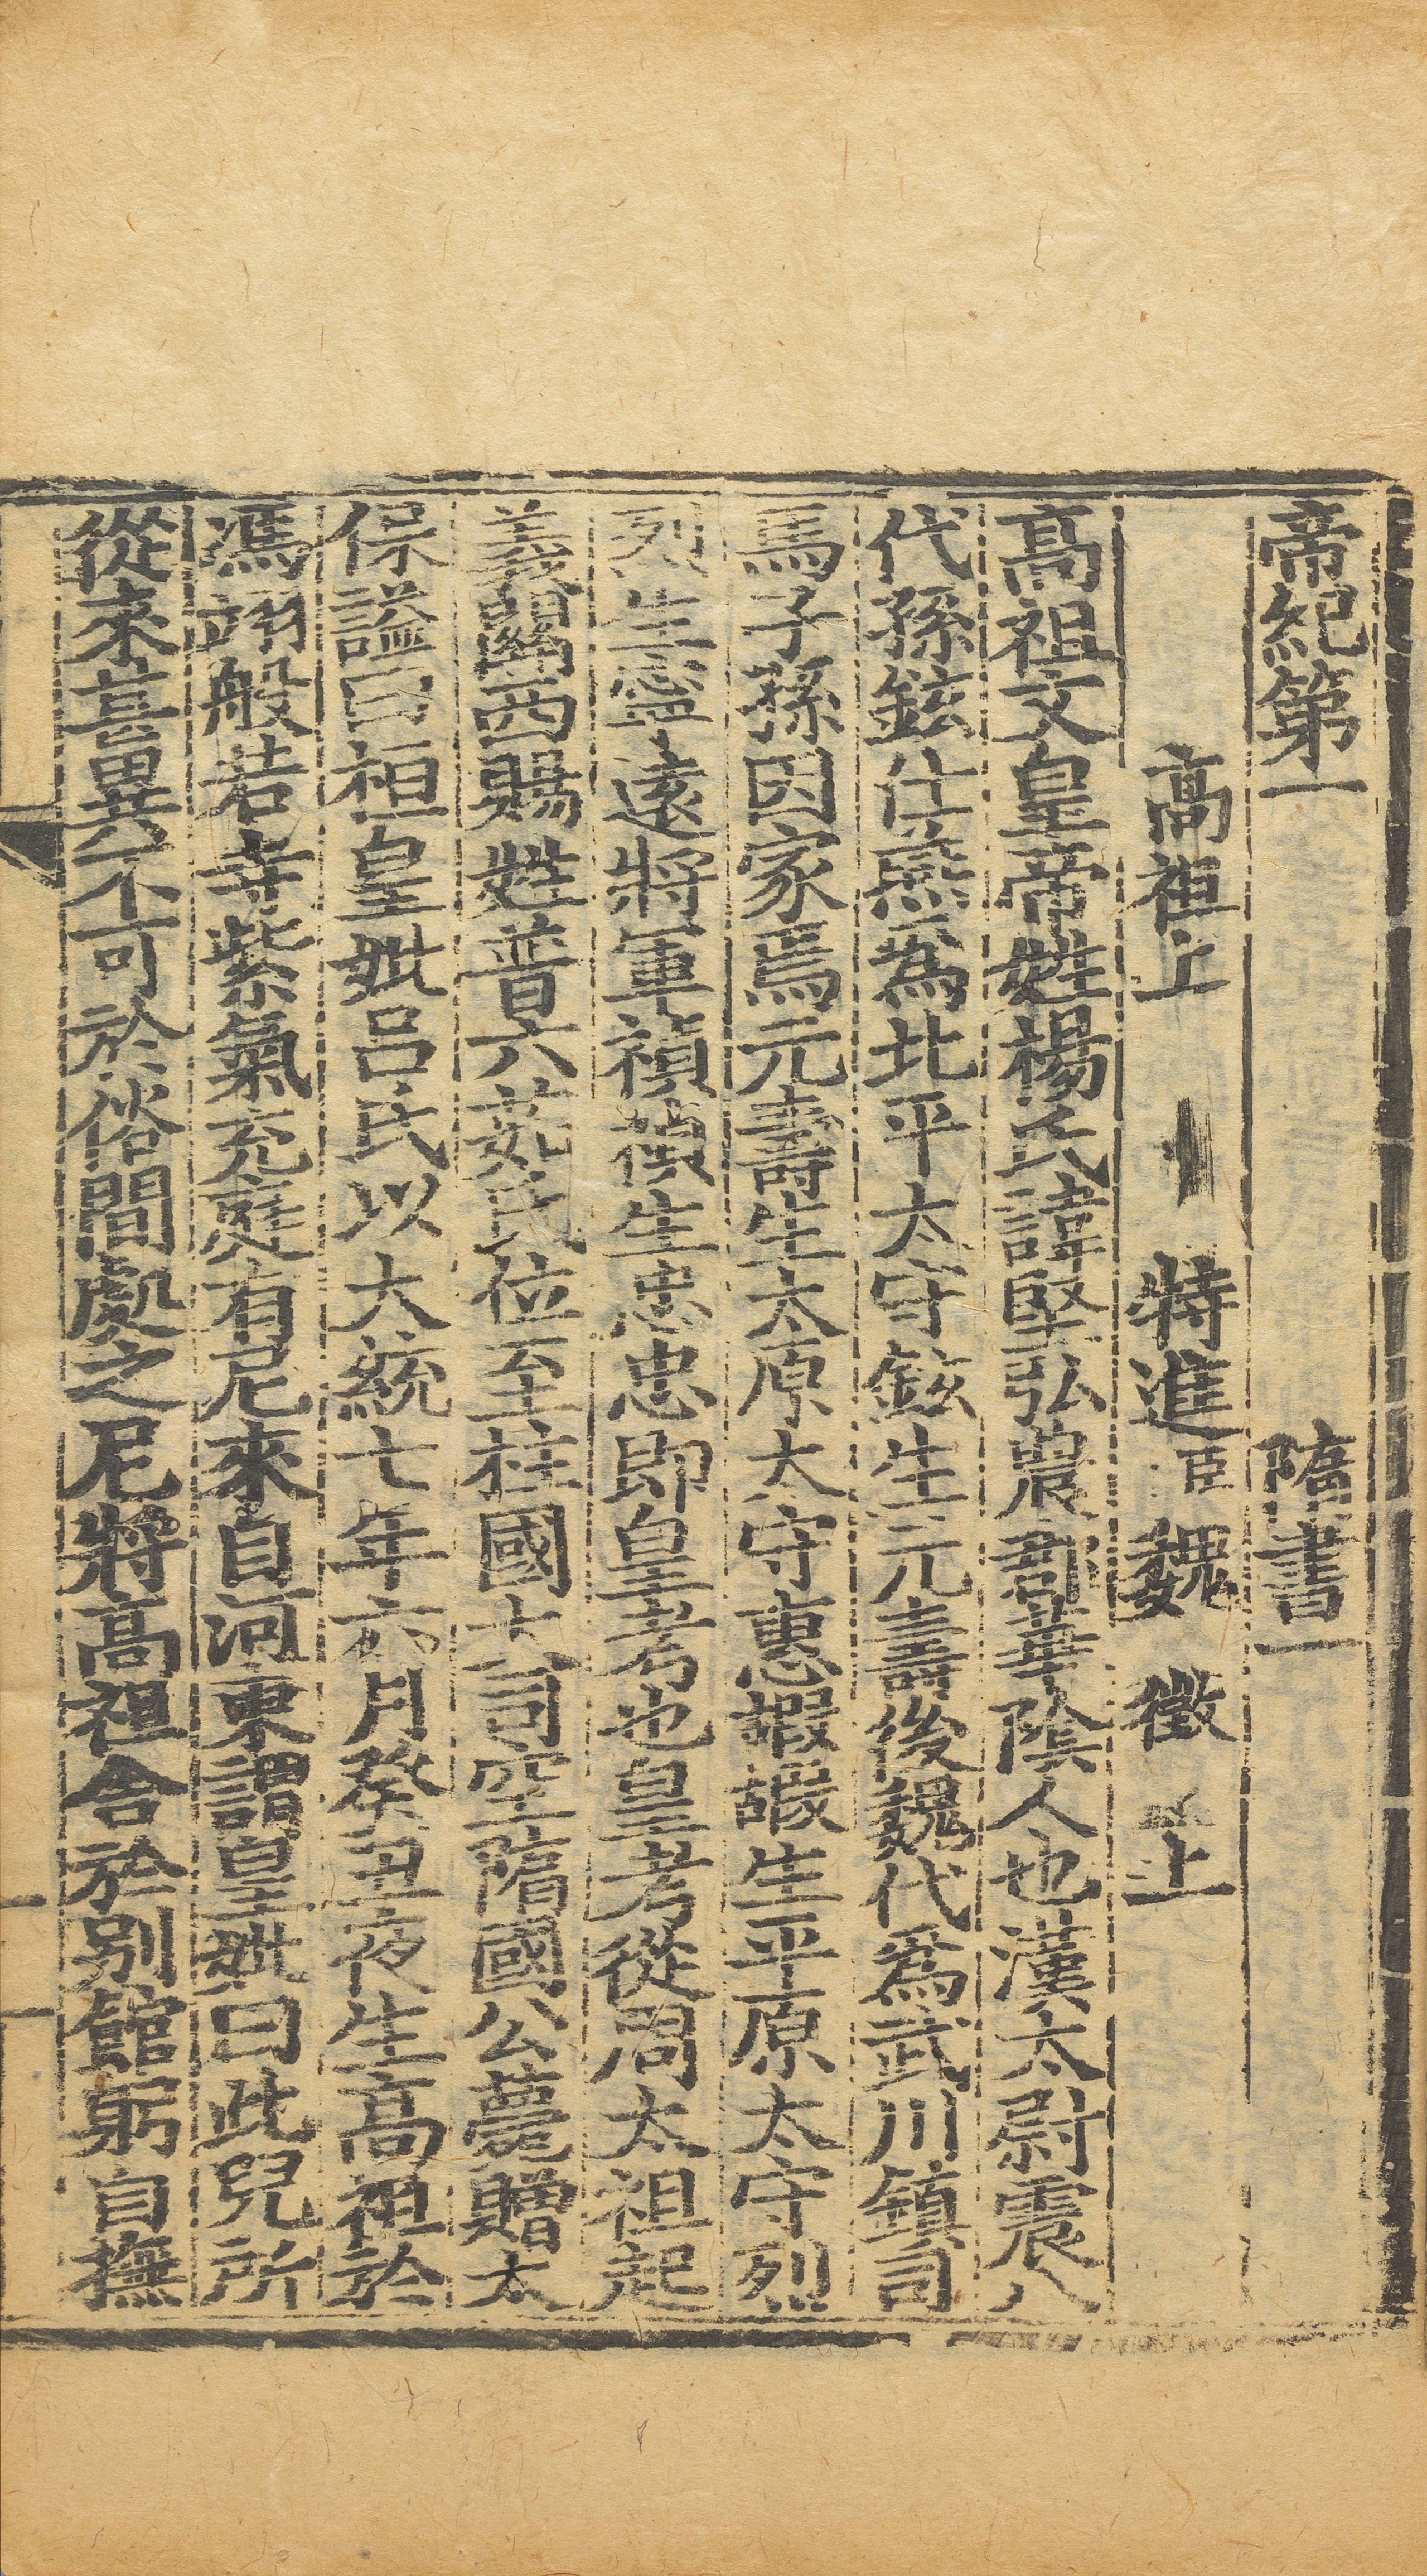 帝紀第一　　隋書一
高祖上　　特進臣魏　徵　上
高祖文皇帝姓楊氏諱堅弘農郡華陰人也漢太尉震八
代孫鉉仕燕爲北平太守鉉生元壽後魏代爲武川鎮司
馬子孫因家焉元壽生太原太守惠嘏嘏生平原太守烈
列生寧遠將軍禎禎生忠忠即皇考也皇考從周太祖起
義關西賜姓普六茹氏位至柱國大司空隋國公薨贈太
保謚曰桓皇妣呂氏以大統七年六月癸丑夜生高祖於
馮翊般若寺紫氣充庭有尼來自河東謂皇妣曰此兒所
從來甚異不可於俗間處之尼將高祖舍於別館躬自撫